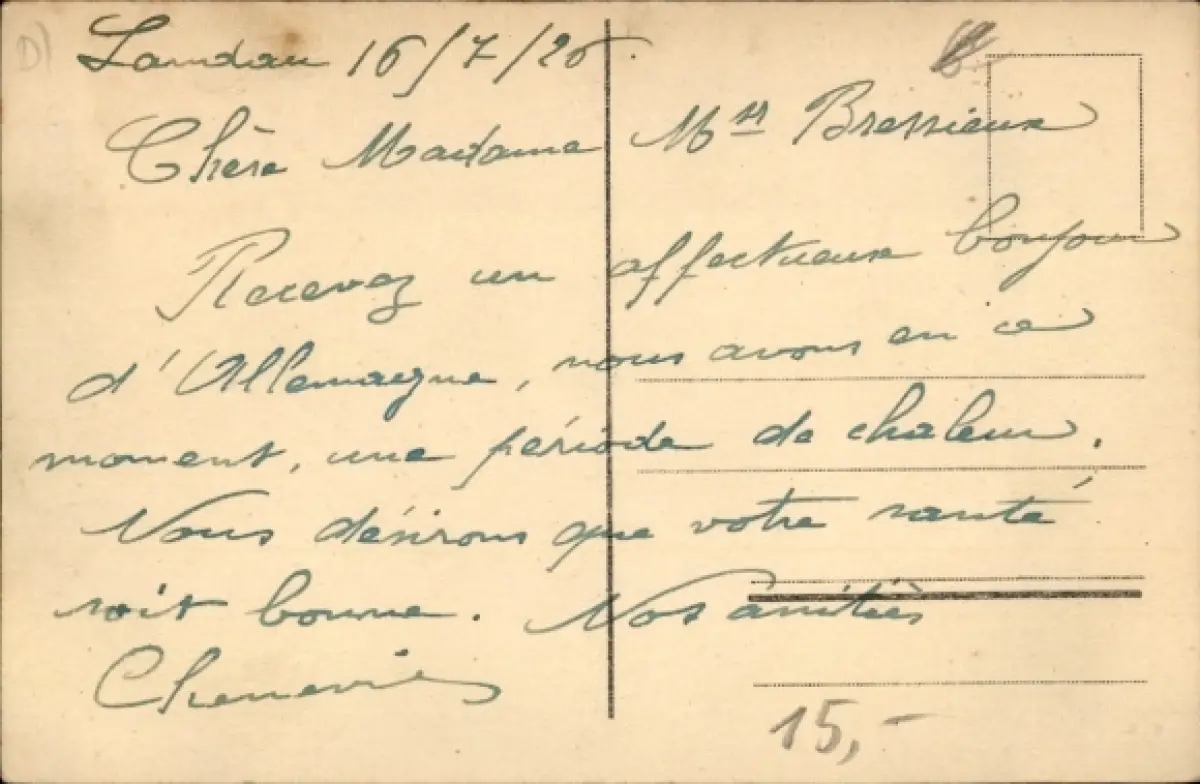 D)
Landau 16/7/26.
Chère Madame Bressieux
Recevez un affectueux bonjour
d'Allemagne, nous avons en ce
moment, une période de chaleur.
Nous désirons que votre santé
soit bonne. Nos amitiés
15,-